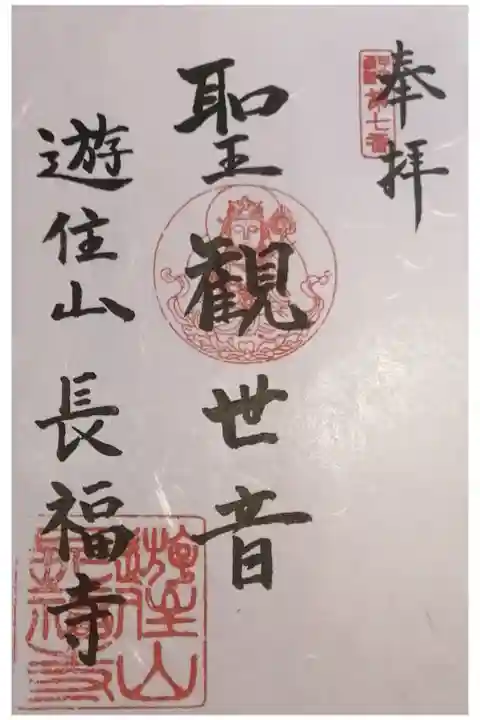 奉拝
第七番
聖観世音
遊住山 長福寺
遊住山
長福寺